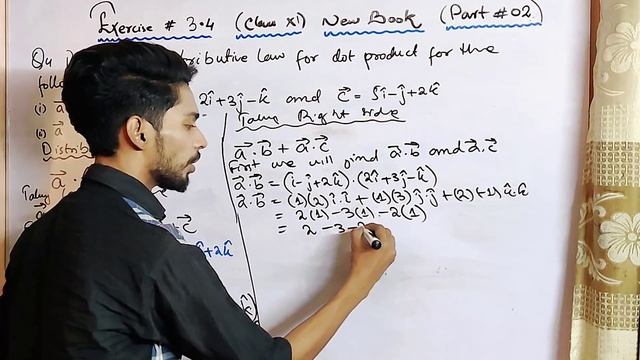 Exercise # 3.4 (Class XI) New Book (Part # 02)
Q4 tributive law for dot product for the
foll
(i) a⃗ 2î+3ĵ−k̂ and c⃗ = 5î−ĵ+2k̂
(ii) a⃗
Distrib
Taking
a⃗ .
c⃗
+2k̂
Taking Right side
a⃗.b⃗ + a⃗.c⃗
First we will find a⃗.b⃗ and a⃗.c⃗
a⃗.b⃗ = (î−ĵ+2k̂).(2î+3ĵ−k̂)
a⃗.b⃗ = (1)(2) î.î + (1)(3) ĵ.ĵ + (2)(-1) k̂.k̂
= 2(1) −3(1) −2(1)
= 2 −3 −